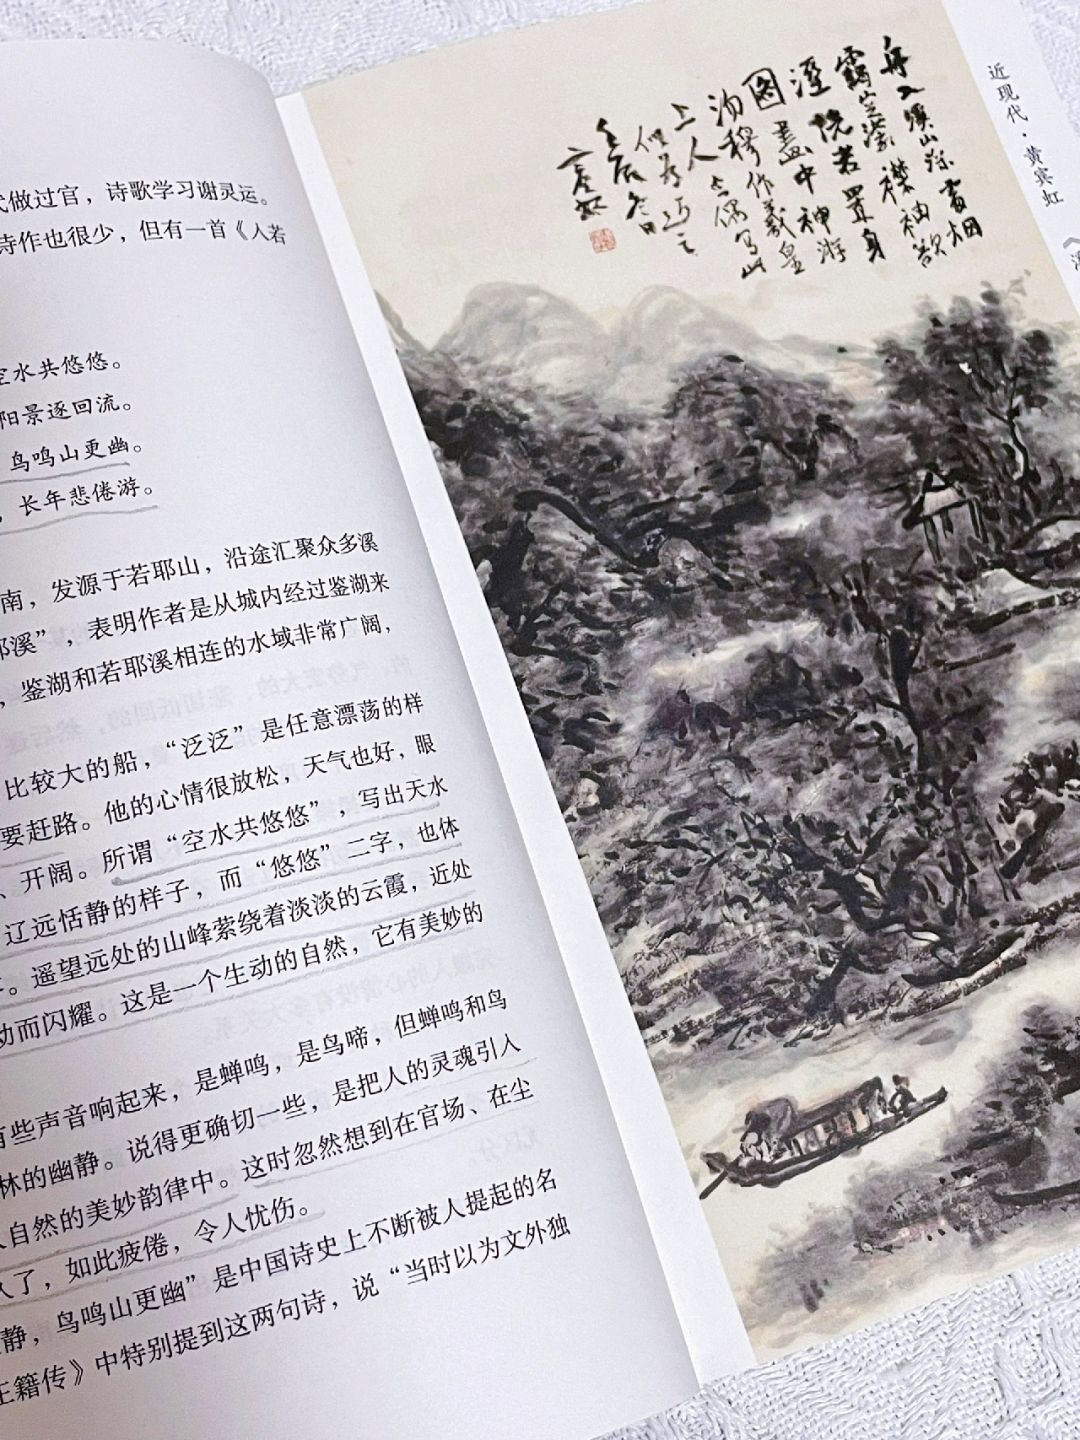 代做过官，诗歌学习谢灵运。
诗作也很少，但有一首《入若
空水共悠悠。
阳景逐回流。
鸟鸣山更幽。
，长年悲倦游。
南，发源于若耶山，沿途汇聚众多溪
耶溪”，表明作者是从城内经过鉴湖来
，鉴湖和若耶溪相连的水域非常广阔，
比较大的船，“泛泛”是任意漂荡的样
要赶路。他的心情很放松，天气也好，眼
、开阔。所谓“空水共悠悠”，写出天水
辽远恬静的样子，而“悠悠”二字，也体
。遥望远处的山峰萦绕着淡淡的云霞，近处
动而闪耀。这是一个生动的自然，它有美妙的
有些声音响起来，是蝉鸣，是鸟啼，但蝉鸣和鸟
林的幽静。说得更确切一些，是把人的灵魂引入
入自然的美妙韵律中。这时忽然想到在官场、在尘
久了，如此疲倦，令人忧伤。
静，鸟鸣山更幽”是中国诗史上不断被人提起的名
王籍传》中特别提到这两句诗，说“当时以为文外独
舟入溪山深處烟
靄空濛襟袖欲
溼恍若置身
圖畫中神游
沕穆作羲皇
上人 偶寫此
壬辰冬日
賓虹
近现代·黄宾虹